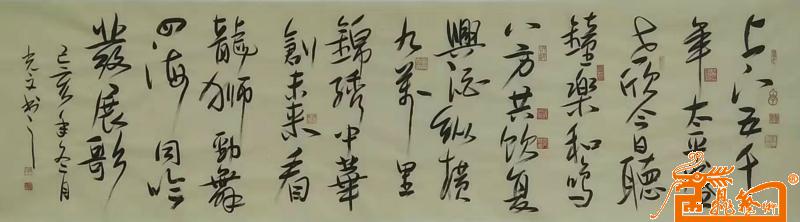 上下五千
年太平盛
世欣今日聽
鐘樂和鳴
八方共飲夏
興酒縱橫
九萬里
錦繡中華
創未來看
龍獅勁舞
四海同吟
發展歌
己亥年冬月
光文书